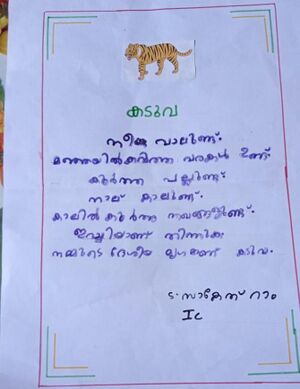 കടുവ
നീണ്ട വാലുണ്ട്.
മഞ്ഞയിൽ കറുത്ത വരകൾ ഉണ്ട്
കൂർത്ത പല്ലുണ്ട്.
നാല് കാലുണ്ട്.
കാലിൽ കൂർത്ത നഖങ്ങളുണ്ട്.
ഇറച്ചിയാണ് തിന്നുക
നമ്മുടെ ദേശീയ മൃഗമാണ് കടുവ.
സാകേത് റാം
I c